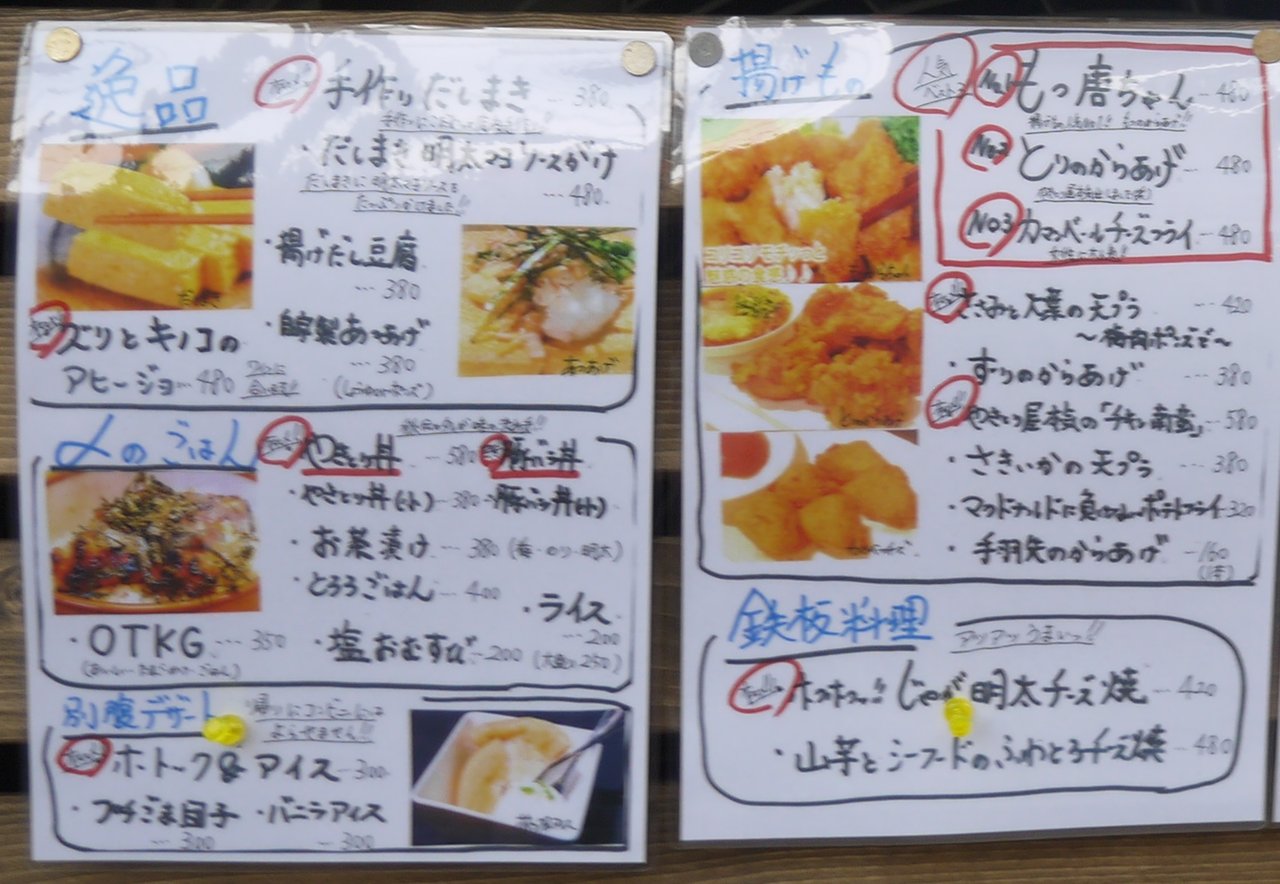 逸品
手作りだしまき … 380
・だしまき明太マヨソースがけ
だしまきに明太マヨソースを
たっぷりかけました!!
… 480
・揚げだし豆腐
… 380
ズリとキノコの
アヒージョ … 480
・自家製あつあげ
… 380
あつあげ
〆のごはん
やきとり丼 … 580
豚バラ丼
・やきとり丼(小) … 380
・豚バラ丼(小)
・お茶漬け … 380 (梅・のり・明太)
・とろろごはん … 400
・ライス
… 200
(大盛り250)
・OTKG … 350
・塩おむすび … 200
別腹デザート
帰りにコンビニには
よらせません!!
ホットケーキ&アイス … 300
・プチごま団子
… 300
・バニラアイス
… 300
揚げもの
人気
ベスト3
No.1 もつ唐ちゃん … 480
No.2 とりのからあげ … 480
No3 カマンベールチーズフライ … 480
女性に大人気!
コリコリ♪モチッっと
魅惑の食感♪♪
ささみと大葉の天プラ … 420
〜梅肉ポン酢で〜
・ずりのからあげ … 380
やきとり屋様の「チキン南蛮」 … 580
・さきいかの天プラ … 380
・マクドナルドに負けないポテトフライ 320
・手羽先のからあげ … 160
(1本)
鉄板料理
アツアツうまいっ!!
ホクホクッ!! じゃが明太チーズ焼 … 420
・山芋とシーフードのふわとろチーズ焼 … 480